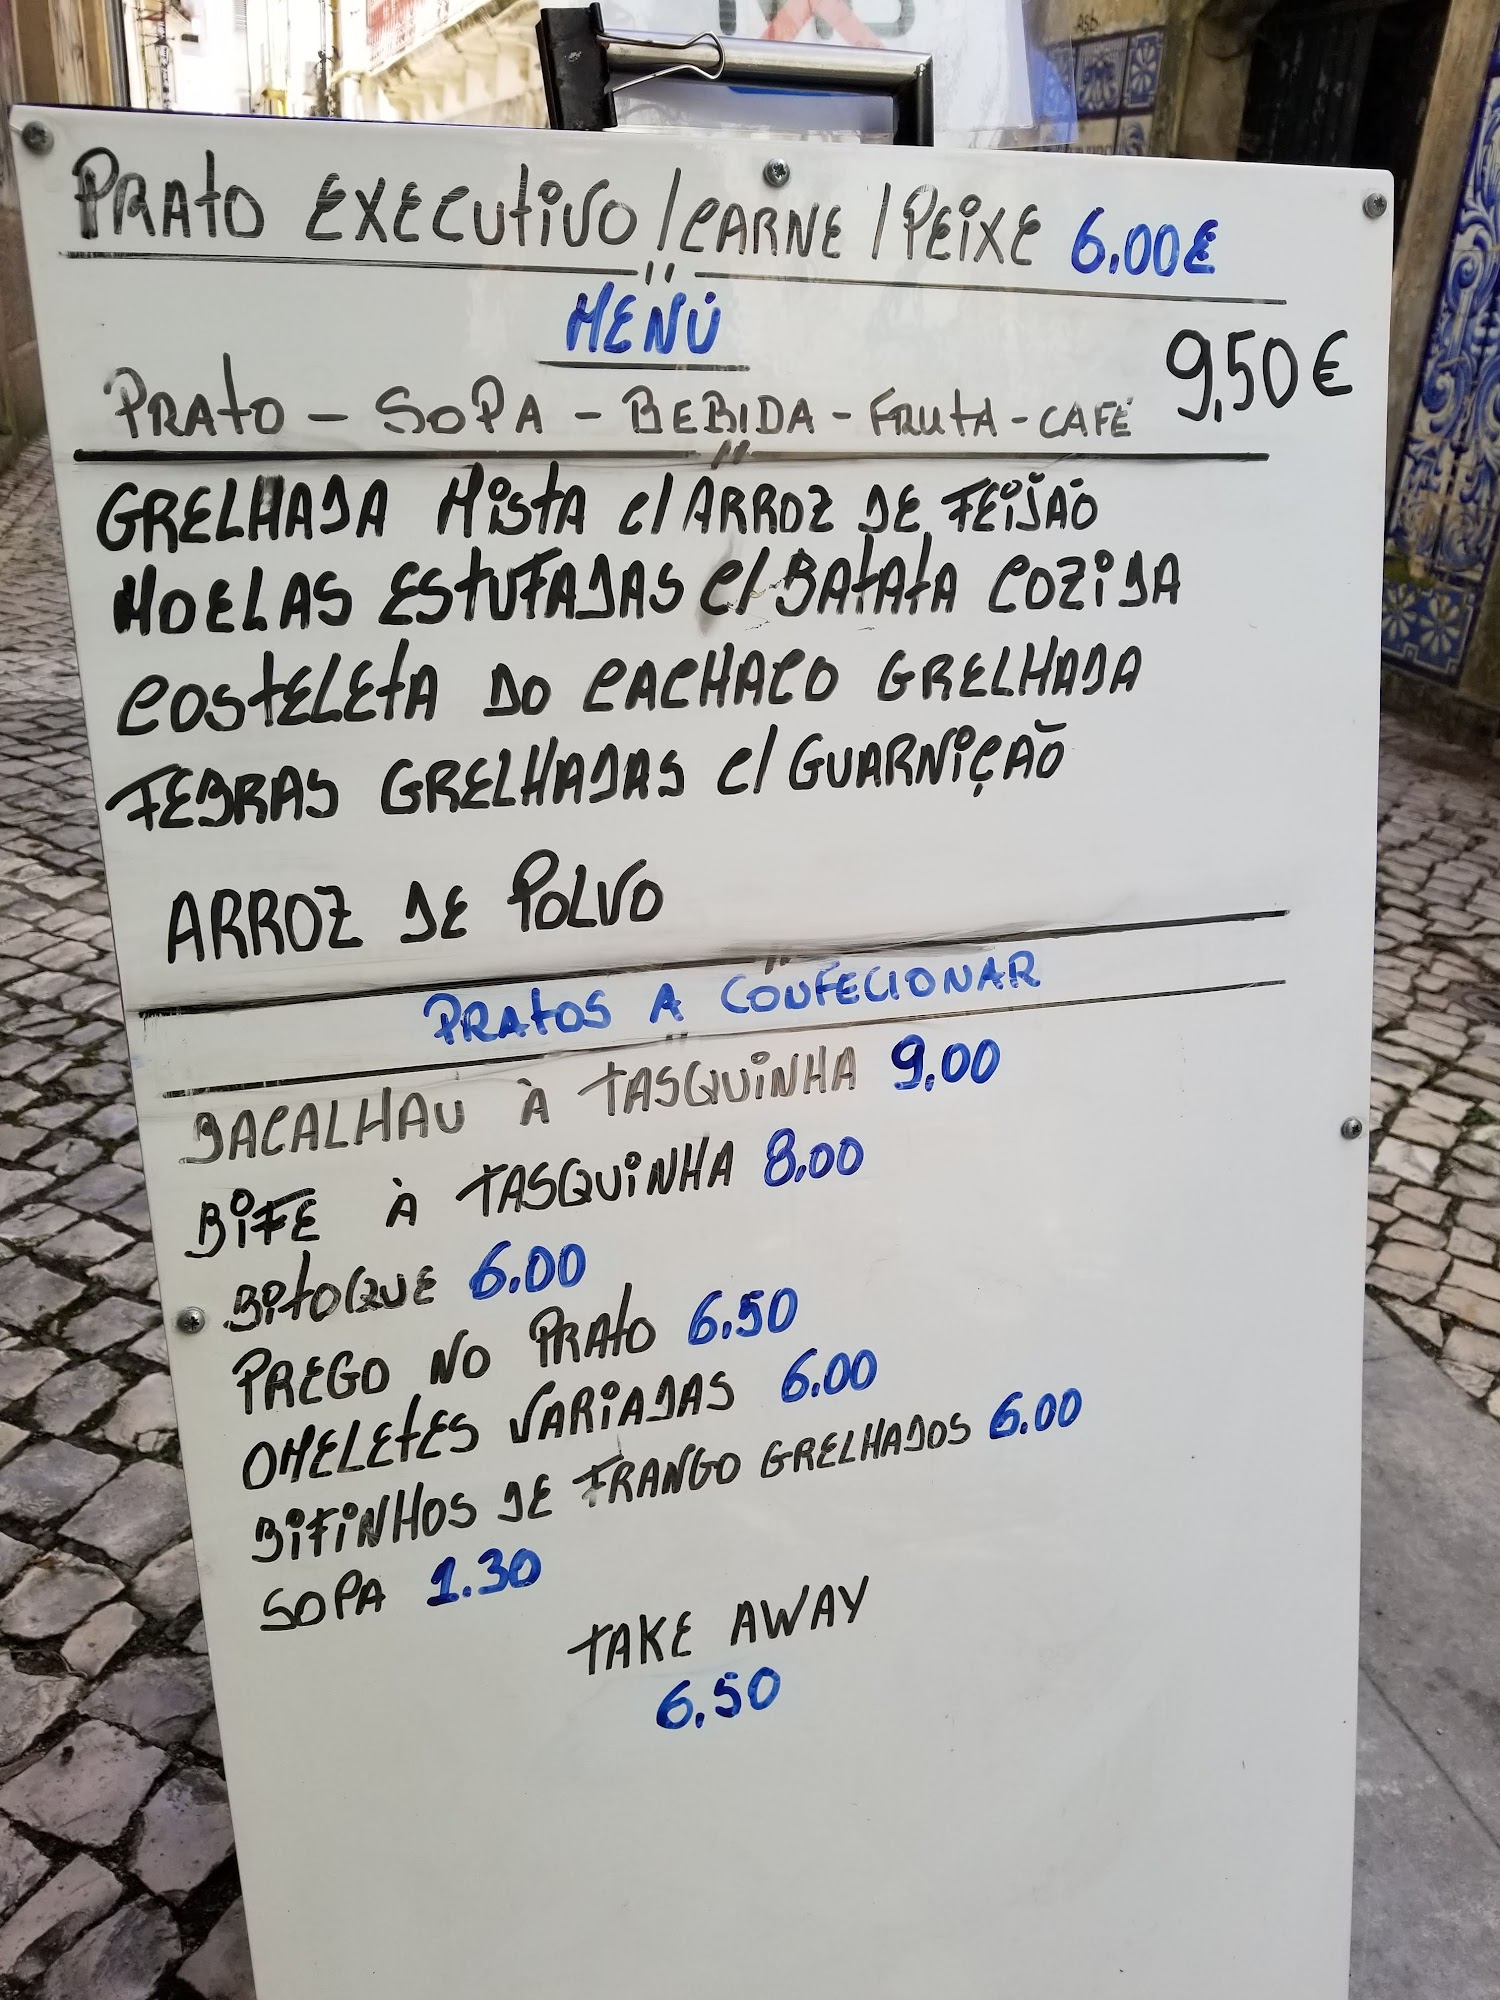 PRATO EXECUTIVO / CARNE / PEIXE 6.00€
MENÚ
9,50€
PRATO - SOPA - BEBIDA - FRUTA - CAFÉ
GRELHADA MISTA C/ ARROZ DE FEIJÃO
MOELAS ESTUFADAS C/ BATATA COZIDA
COSTELETA DO CACHACO GRELHADA
FEBRAS GRELHADAS C/ GUARNIÇÃO
ARROZ DE POLVO
PRATOS A CONFECIONAR
BACALHAU À TASQUINHA 9.00
BIFE À TASQUINHA 8.00
BITOQUE 6.00
PREGO NO PRATO 6.50
OMELETES VARIADAS 6.00
BIFINHOS DE FRANGO GRELHADOS 6.00
SOPA 1.30
TAKE AWAY
6.50